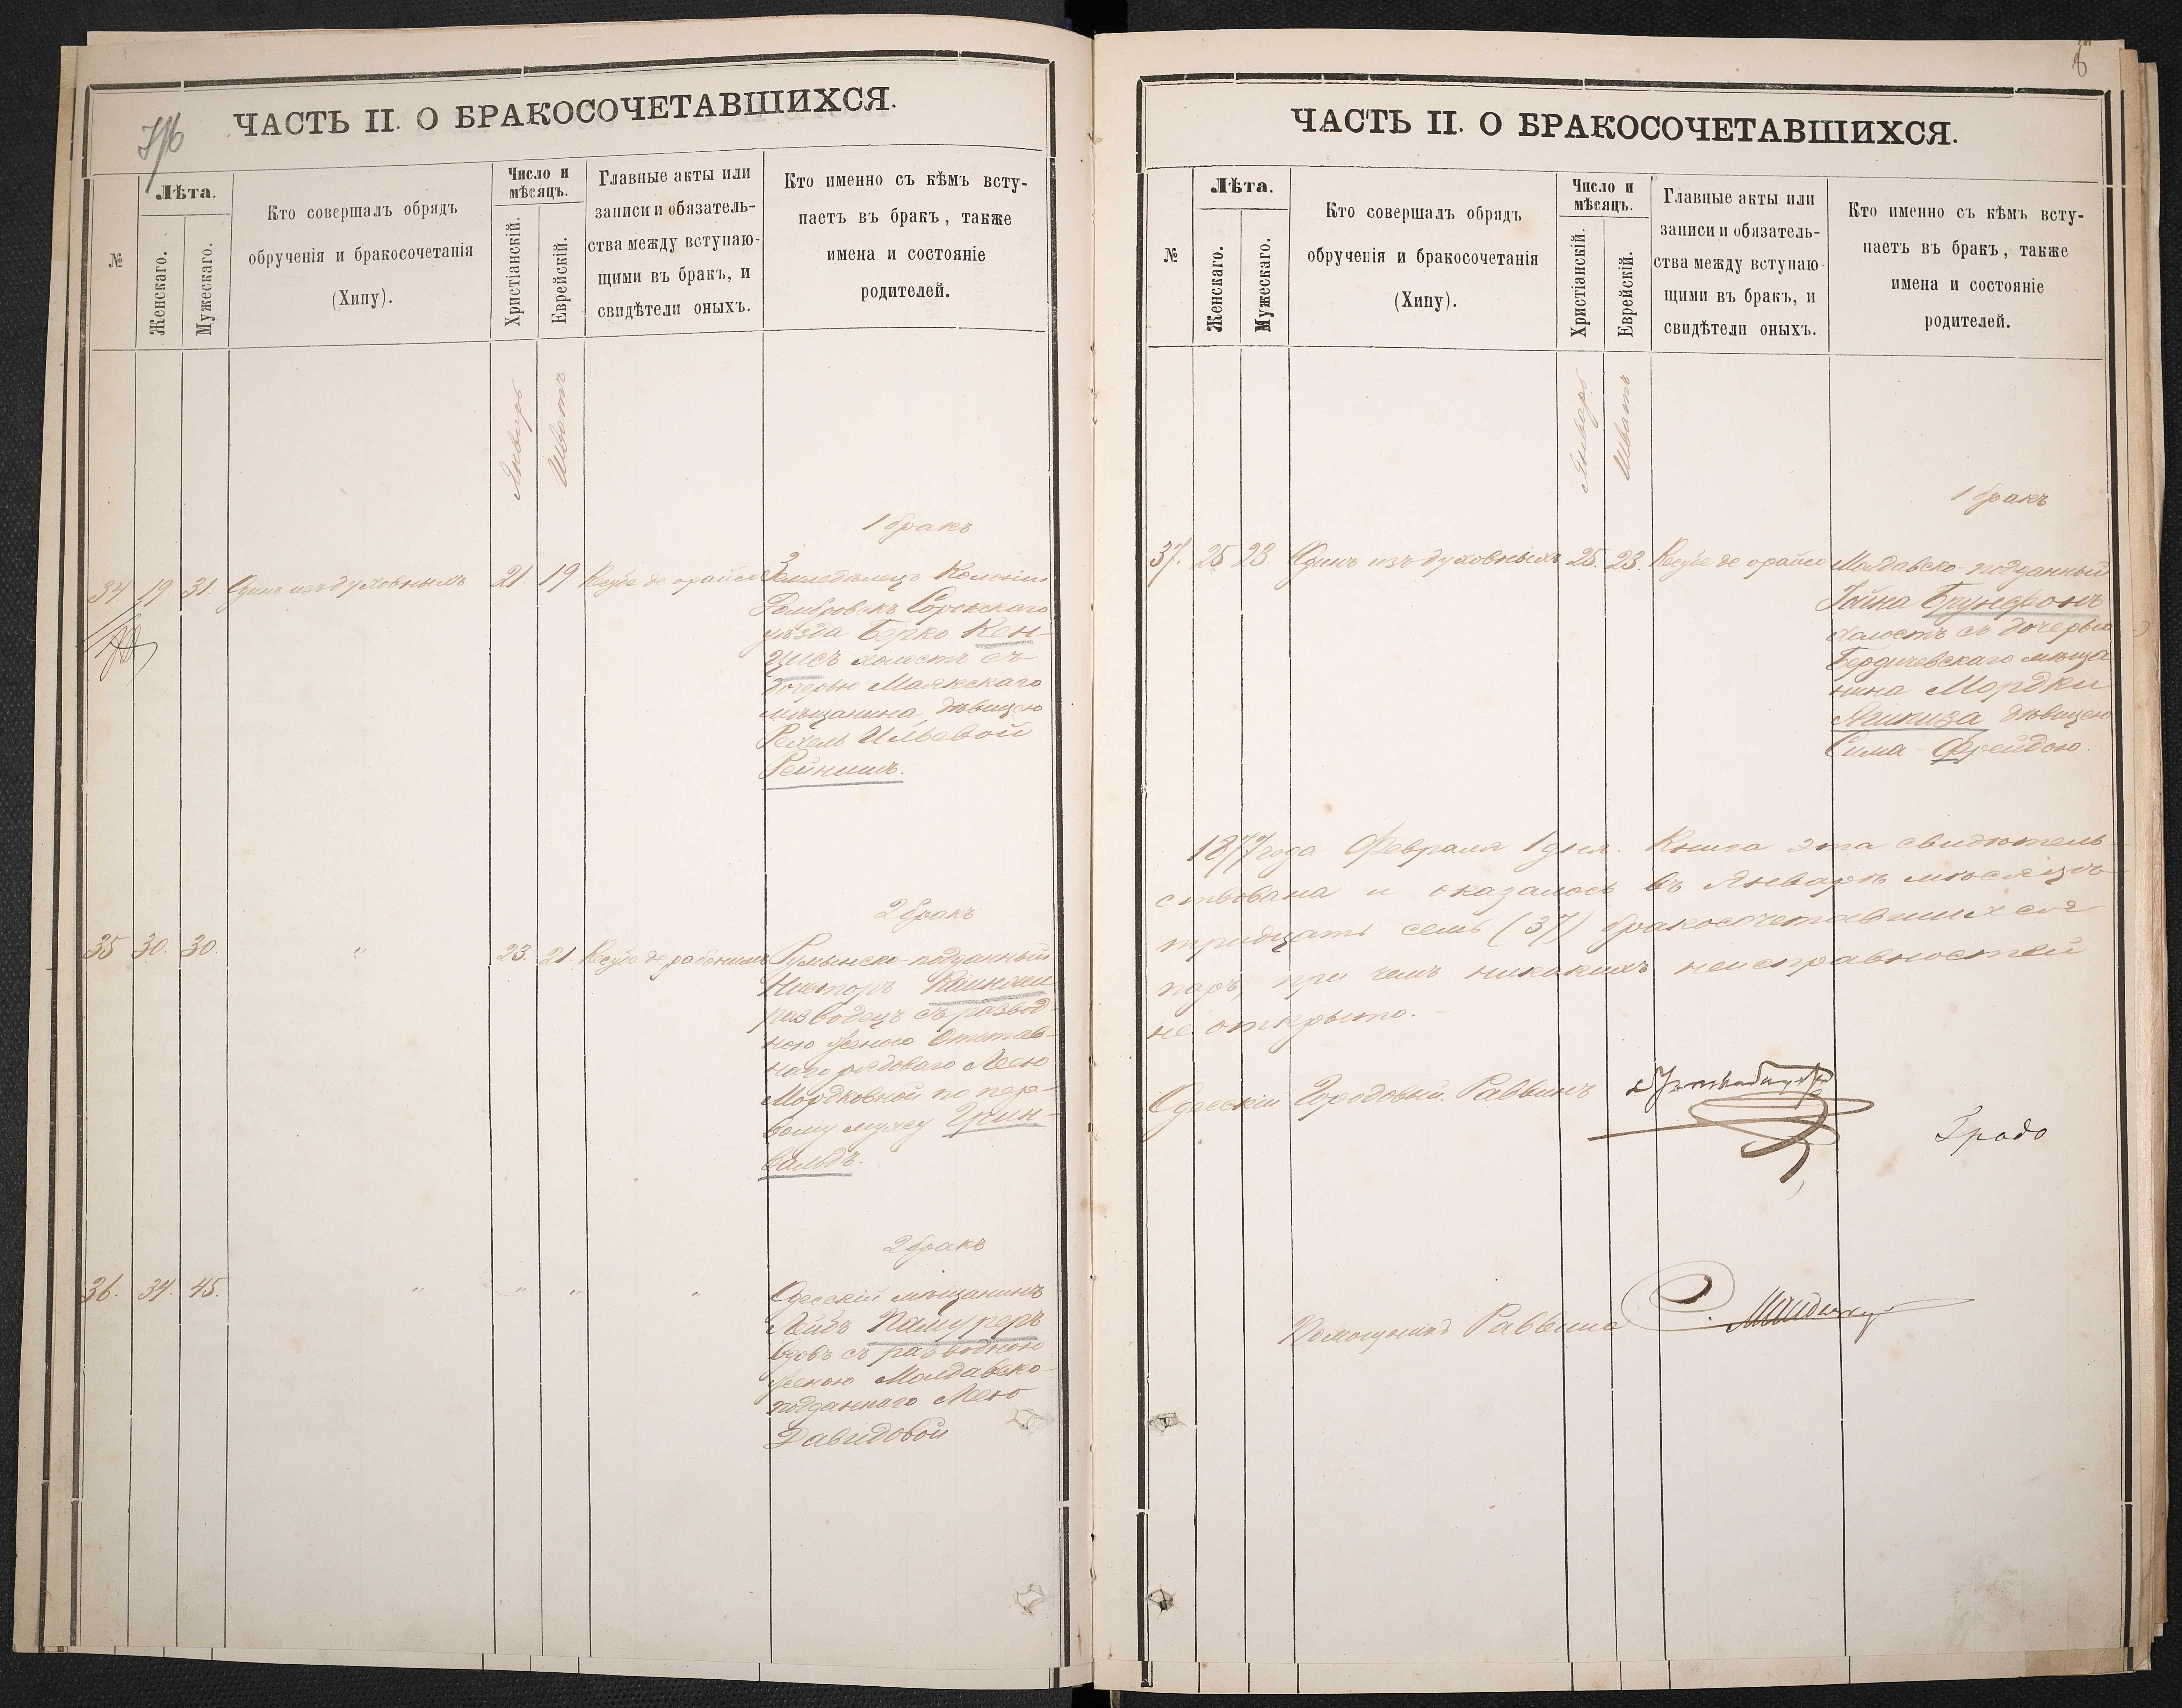 ЧАСТЬ II. О БРАКОСОЧЕТАВШИХСЯ.
№
Лѣта.
Женскаго.
Мужескаго.
Кто совершалъ обрядъ
обрученія и бракосочетанія
(Хипу).
Число и
мѣсяцъ.
Христіанскій.
Еврейскій.
Главные акты или
записи и обязатель-
ства между вступаю-
щими въ бракъ, и
свидѣтели оныхъ.
Кто именно съ кѣмъ всту-
паетъ въ бракъ, также
имена и состояніе
родителей.
Январь
Шватъ
1 бракъ
34 19 31. Одинъ изъ духовныхъ 21 19 Кесубе де орайсо Земледѣлецъ Колоніи
Сорокскаго
уѣзда Берко Кен-
цисъ холостъ съ
дочерью Маякскаго
мѣщанина, дѣвицею
Рейнишъ.
2 бракъ
35 30. 30. " 23. 21. Кесубе де рабонимъ Румынско-подданный
разводецъ съ развод-
ною женою Отстав-
наго рядоваго Леею
Мордковной по пер-
вому мужу Грин-
вальдъ.
2 бракъ
36. 34. 45. " " " " Одесскій мѣщанинъ
Лейбъ
вдовъ съ разводною
женою Молдавско-
подданнаго Леею
Давидовой
ЧАСТЬ II. О БРАКОСОЧЕТАВШИХСЯ.
№
Лѣта.
Женскаго.
Мужескаго.
Кто совершалъ обрядъ
обрученія и бракосочетанія
(Хипу).
Число и
мѣсяцъ.
Христіанскій.
Еврейскій.
Главные акты или
записи и обязатель-
ства между вступаю
щими въ бракъ, и
свидѣтели оныхъ.
Кто именно съ кѣмъ всту-
паетъ въ бракъ, также
имена и состояніе
родителей.
Январь
Шватъ
1 бракъ
37. 25 23. Одинъ изъ духовныхъ 25. 23. Кесубе де орайсо Молдавско-подданный
Іойна Брунфонъ
холостъ съ дочерью
Бердичевскаго мѣща-
нина Мордки
дѣвицею
Сима-Фрейдою.
1877 года Февраля 1 дня. Книга эта свидѣтель-
ствована и оказалось въ Январѣ мѣсяцѣ
тридцать семь (37) бракосочетавшихся
паръ, при чемъ никакихъ неисправностей
не открыто.
Одесскій Городовый Раввинъ
Помощникъ Раввина